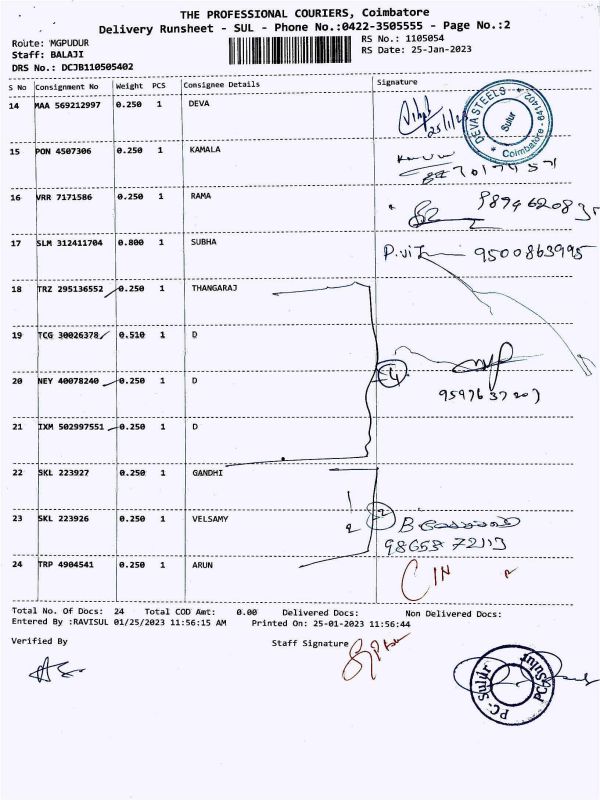 THE PROFESSIONAL COURIERS, Coimbatore
Delivery Runsheet - SUL - Phone No.:0422-3505555 - Page No.:2
Route: MGPUDUR
RS No.: 1105054
Staff: BALAJI
RS Date: 25-Jan-2023
DRS No.: DCJB110505402
S No Consignment No Weight PCS Consignee Details Signature
14 MAA 569212997 0.250 1 DEVA
25/1/23
DEVA STEELS * Coimbatore - 641402 * Sulur
15 PON 4507306 0.250 1 KAMALA
16 VRR 7171586 0.250 1 RAMA
17 SLM 312411704 0.800 1 SUBHA 9500863995
18 TRZ 295136552 0.250 1 THANGARAJ
19 TCG 30026378 0.510 1 D
20 NEY 40078240 0.250 1 D
4
21 IXM 502997551 0.250 1 D
22 SKL 223927 0.250 1 GANDHI
23 SKL 223926 0.250 1 VELSAMY
24 TRP 4904541 0.250 1 ARUN
Total No. Of Docs: 24 Total COD Amt: 0.00 Delivered Docs: Non Delivered Docs:
Entered By :RAVISUL 01/25/2023 11:56:15 AM Printed On: 25-01-2023 11:56:44
Verified By Staff Signature
PC- Sulur PC- Sulur